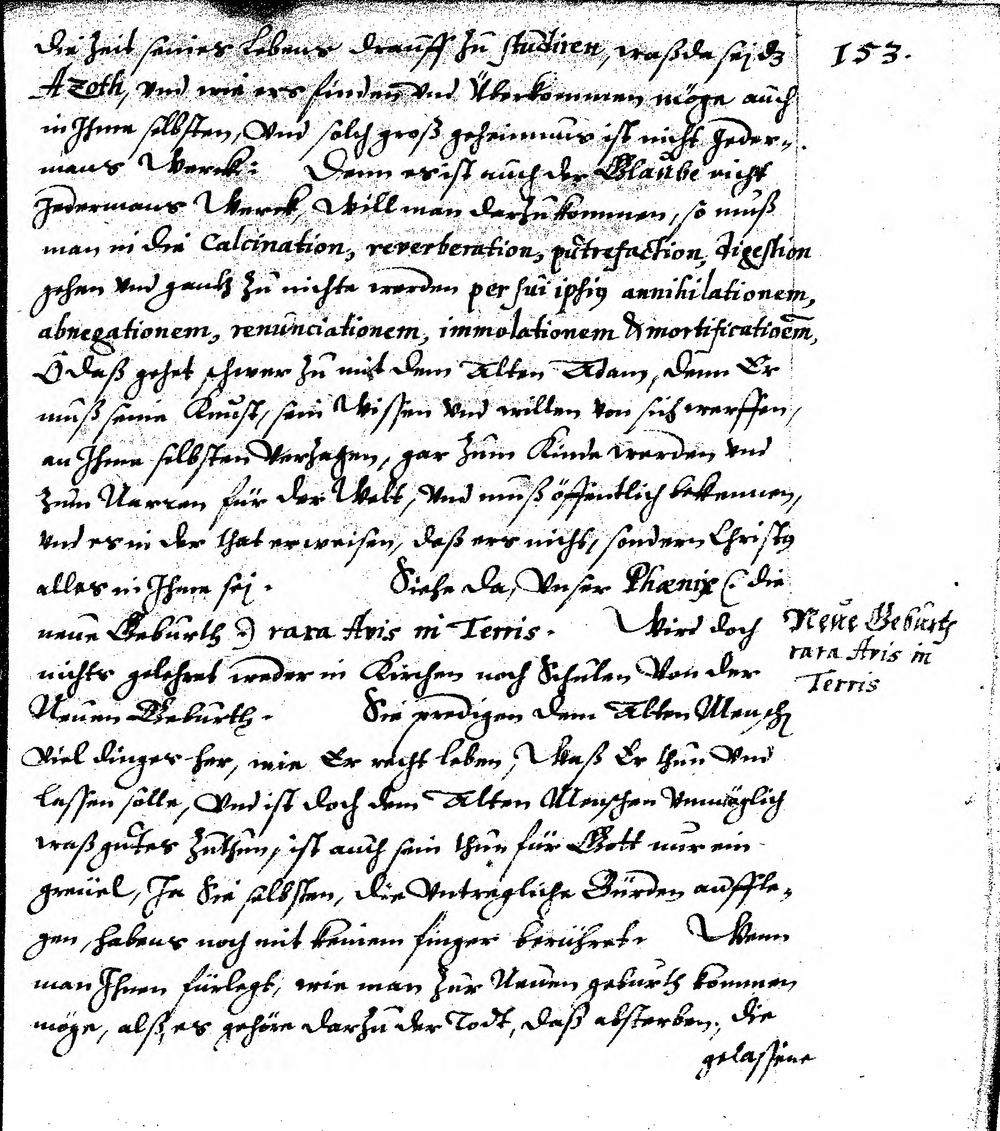 153.
die Zeit seines Lebens drauff zu studiren, waß da sej dz
Azoth, und wie ers finden und Überkommen möge auch
in Ihme selbsten, Und solch groß geheimnus ist nicht Jeder=
mans Werck: Denn es ist auch der Glaube nicht
Jedermans Werck, Will man darzu kommen, so muß
man in die Calcination, reverberation, putrefaction, digestion
gehen und gantz zu nichte werden per sui ipsius annihilationem,
abnegationem, renunciationem, immolationem & mortificatioēm,
O daß gehet schwer zu mit dem Alten Adam, denn Er
muß seine Kunst, sein Wissen und willen von sich werffen,
an Ihme selbsten Verzagen, gar zum Kinde werden und
zum Narren für der Welt, Und muß öffentlich bekennen,
und es in der that erweisen, daß ers nicht, sondern Christus
alles in Ihme sej. Siehe da, Unser Phœnix (: die
neue Geburth :) rara Avis in Terris. Wird doch
nichts gelehret weder in Kirchen noch Schulen Von der
Neuen Geburth. Sie predigen dem Alten Mensch
Viel dinges her, wie Er recht leben, Waß Er thun Und
lassen solle, Und ist doch dem Alten Menschen unmöglich
waß gutes Zuthun, ist auch sein thun für Gott nur ein
greuel, Ja Sie selbsten, die Untregliche Bürden auffle=
gen, habens noch mit keinem finger berühret. Wenn
man Ihnen fürlegt, wie man zur Neuen geburth kommen
möge, alß, es gehöre darzu der Todt, daß absterben, die
gelassene
Neue Geburth
rara Avis in
Terris